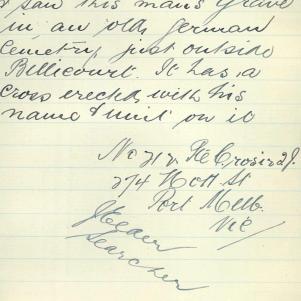 I saw this man's grave
in an old German
Cemetry just outside
Bellicourt. It has a
cross erected with his
name & unit on it
Pte Crosier J.
274 Nott St
Port Melb.
Vic
Searcher